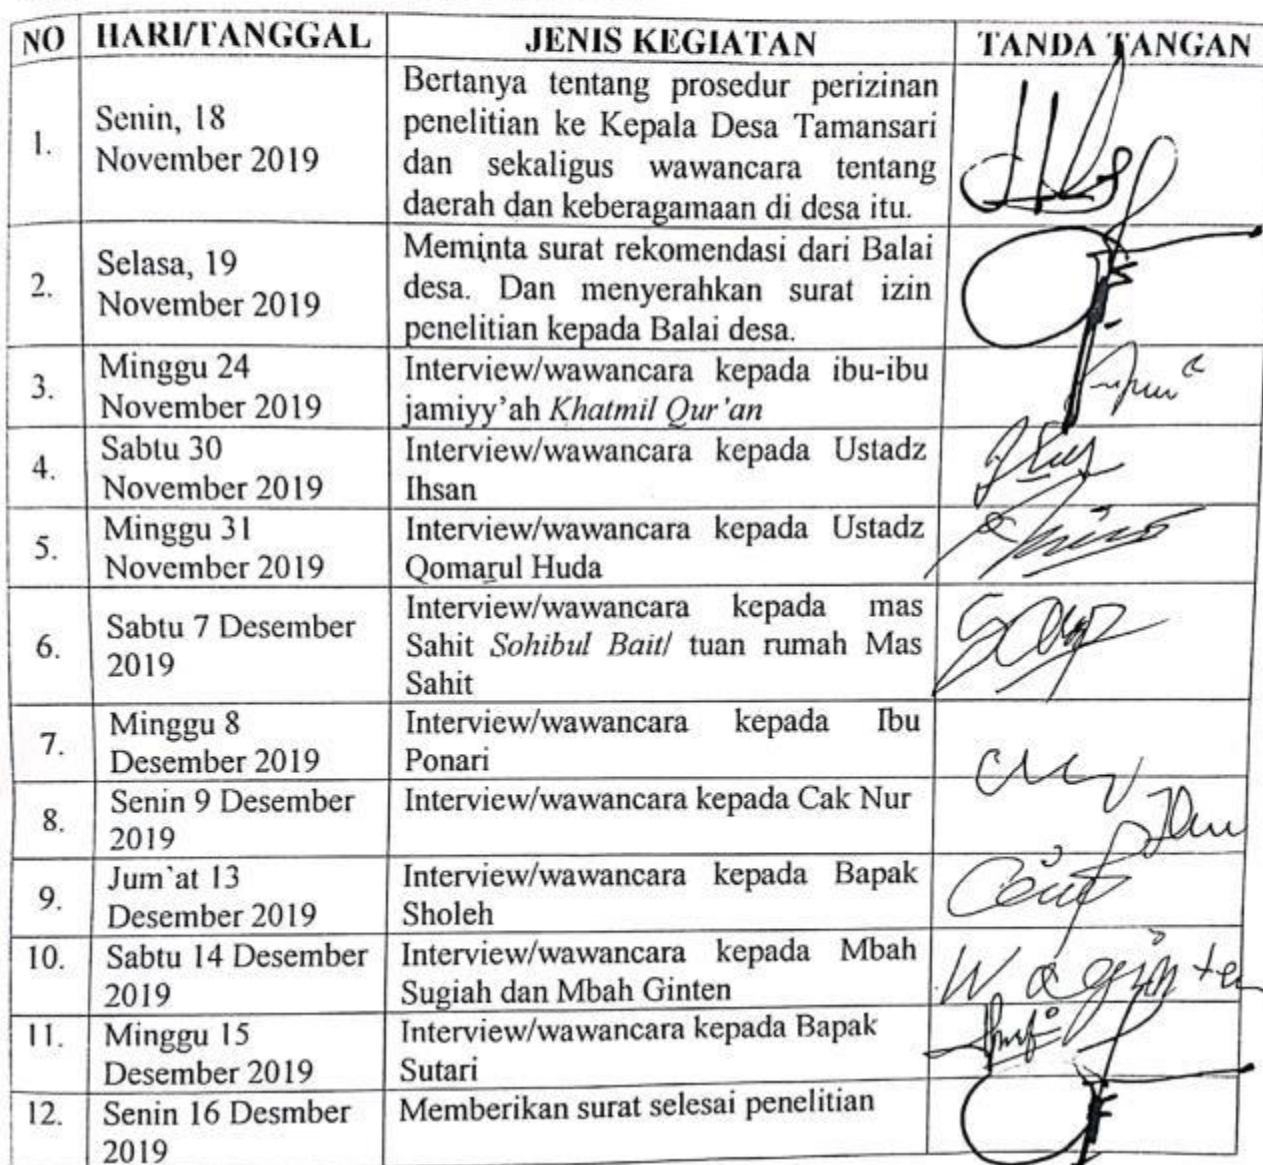 NO HARI/TANGGAL JENIS KEGIATAN TANDA TANGAN
1.
Senin, 18
November 2019
Bertanya tentang prosedur perizinan
penelitian ke Kepala Desa Tamansari
dan sekaligus wawancara tentang
daerah dan keberagamaan di desa itu.
2.
Selasa, 19
November 2019
Meminta surat rekomendasi dari Balai
desa. Dan menyerahkan surat izin
penelitian kepada Balai desa.
3.
Minggu 24
November 2019
Interview/wawancara kepada ibu-ibu
jamiyy'ah Khatmil Qur'an
4.
Sabtu 30
November 2019
Interview/wawancara kepada Ustadz
Ihsan
5.
Minggu 31
November 2019
Interview/wawancara kepada Ustadz
Qomarul Huda
6.
Sabtu 7 Desember
2019
Interview/wawancara kepada mas
Sahit Sohibul Bait/ tuan rumah Mas
Sahit
7.
Minggu 8
Desember 2019
Interview/wawancara kepada Ibu
Ponari
8.
Senin 9 Desember
2019
Interview/wawancara kepada Cak Nur
9.
Jum`at 13
Desember 2019
Interview/wawancara kepada Bapak
Sholeh
10.
Sabtu 14 Desember
2019
Interview/wawancara kepada Mbah
Sugiah dan Mbah Ginten
11.
Minggu 15
Desember 2019
Interview/wawancara kepada Bapak
Sutari
12.
Senin 16 Desmber
2019
Memberikan surat selesai penelitian